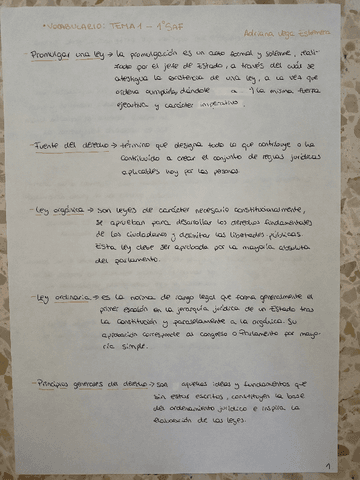 * VOCABULARIO: TEMA 1 - 1º GAF
Adriana Vega
Promulgar una ley → la promulgación es un acto formal y solemne, reali-
zado por el jefe de Estado, a través del cual se
atestigua la existencia de una ley, a la vez que
ordena cumplirla, dándole a la misma fuerza
ejecutiva y carácter imperativo.
- Fuente del derecho → término que designa todo lo que contribuye o ha
contribuido a crear el conjunto de reglas jurídicas
aplicables hoy por las personas.
- Ley orgánica → son leyes de carácter necesario constitucionalmente,
se aprueban para desarrollar los derechos fundamentales
de los ciudadanos y delimitar las libertades públicas.
Esta ley debe ser aprobada por la mayoría absoluta
del parlamento.
- Ley ordinaria → es la norma de rango legal que forma generalmente el
primer escalón en la jerarquía jurídica de un Estado tras
la constitución y paralelamente a la orgánica. Su
aprobación corresponde al congreso o Parlamento por mayo-
ría simple.
- Principios generales del derecho → son aquellas ideas y fundamentos que
sin estar escritos, constituyen la base
del ordenamiento jurídico e inspira la
elaboración de las leyes.
1